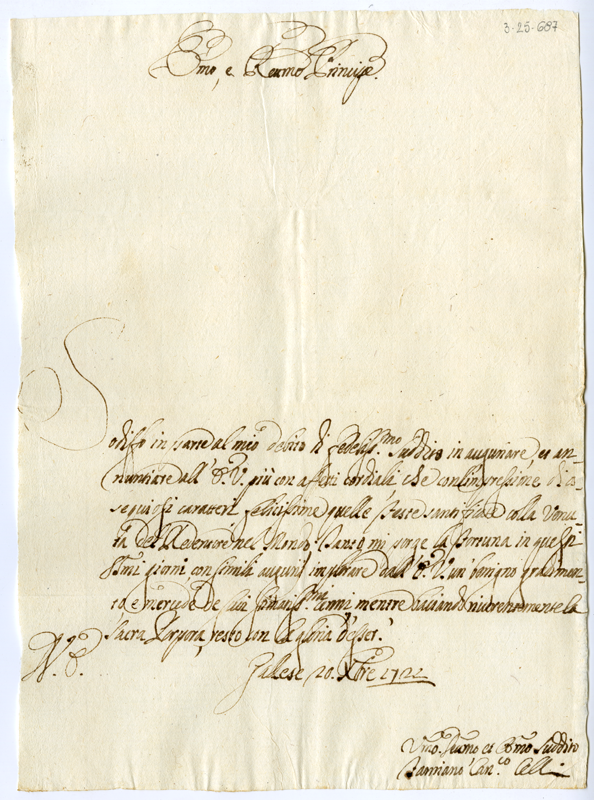 3-25-687
Em̃o, e Reumo Principe.
Sodisfo in parte al mio debito di fedeliss.mo Suddito in auguriare, et an-
nuntiare all' E.V. più con affetti cordiali, che con impressione di os-
sequiosi carateri felicissime quelle feste santificate colla Venu-
ta del Redentore nel Mondo. Tanto mi porge la fortuna in questi
giorni, con simili augurij implorare dall' E.V. un benigno gradimen-
to e mercede de miei
anni mentre baciando riverentemente la
Sacra Porpora, resto con la gloria d'esser.
V. E.
Galese 20. Xbre 1722
Vmo. Dumo et Obmo Suddito
Damiano Can.co Celli